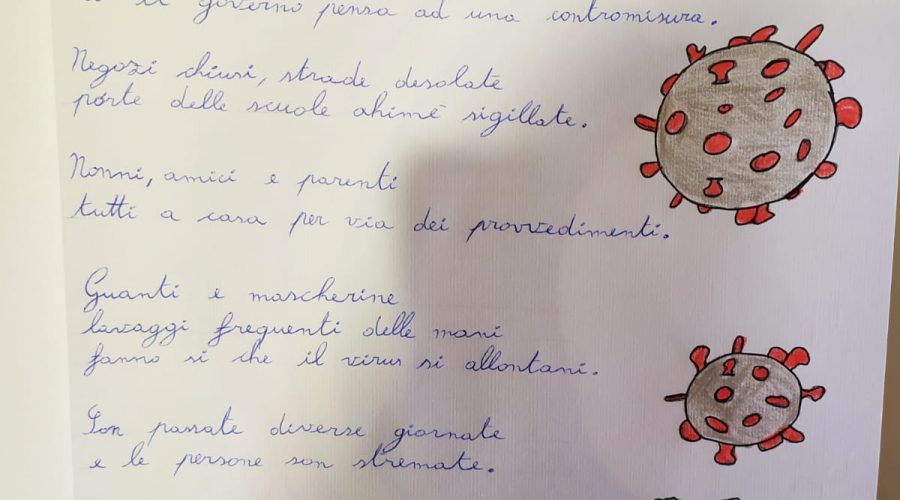 il governo pensa ad una contromisura.
Negozi chiusi, strade desolate
porte delle scuole ahimè sigillate.
Nonni, amici e parenti
tutti a casa per via dei provvedimenti.
Guanti e mascherine
lavaggi frequenti delle mani
fanno si che il virus si allontani.
Son passate diverse giornate
e le persone son stremate.